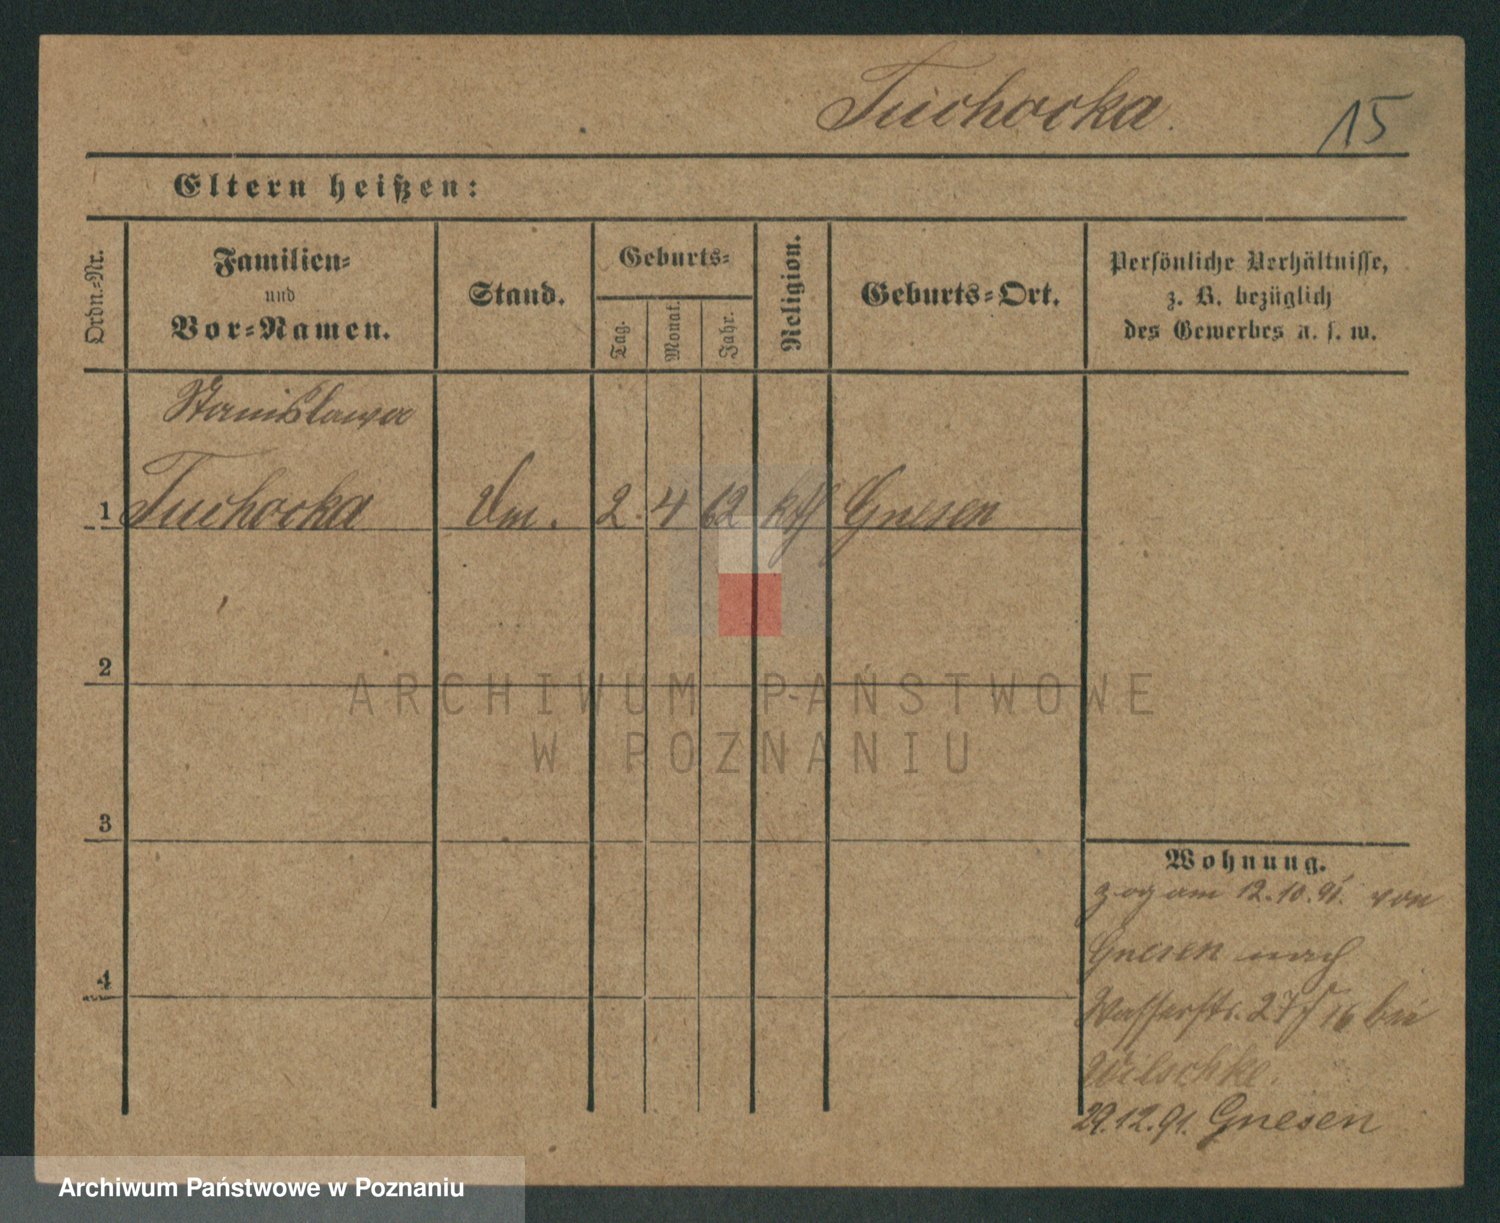 Tuchocka.
15
Eltern heißen:
Ordn.-Nr.
Familien-
und
Vor-Namen.
Stand.
Geburts-
Tag.
Monat.
Jahr.
Religion.
Geburts-Ort.
Persönliche Verhältnisse,
z. B. bezüglich
des Gewerbes u. s. w.
Stanislawa
1 Tuchocka 2. 4 62 kth Gnesen
2
3
4
Wohnung.
zog am 12.10.91. von
Gnesen nach
Wasserstr. 27 16 bei
Wilschke.
29.12.91. Gnesen
ARCHIWUM PAŃSTWOWE
W POZNANIU
Archiwum Państwowe w Poznaniu